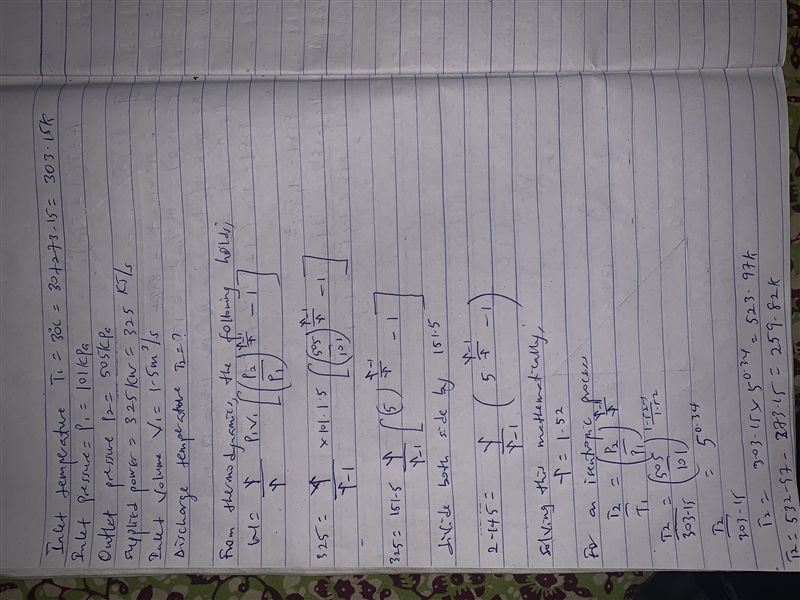 Inlet temperature T1 = 30c = 30+273.15 = 303.15K
Inlet pressure = P1 = 101KPa
Outlet pressure P2 = 505KPa
Supplied power = 325KW = 325 KJ/s
Inlet Volume V1 = 1.5m³/s
Discharge temperature T2 = ?
From thermodynamics, the following holds;
W = γ/γ P1V1 [(P2/P1)^(γ-1/γ) - 1]
325 = γ/γ-1 × 101.1.5 [(505/101)^(γ-1/γ) - 1]
325 = 151.5 γ/γ-1 [(5)^(γ-1/γ) - 1]
divide both side by 151.5
2.145 = γ/γ-1 (5^(γ-1/γ) - 1)
Solving this mathematically,
γ = 1.52
For an isentropic process
T2/T1 = (P2/P1)^(γ-1/γ)
T2/303.15 = (505/101)^(1.52-1/1.52)
T2/303.15 = 5^0.34
T2 = 303.15 × 5^0.34 = 523.97K
T2 = 532.97 - 273.15 = 259.82K